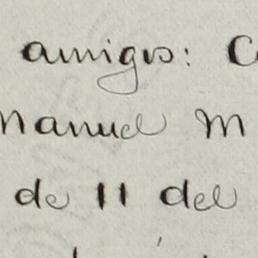 amigos: C
Manuel M
de 11 del